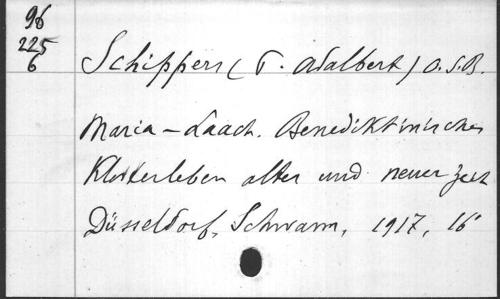 96
225
6
Schippers (P. Adalbert) O.S.B.
Maria-Laach. Benediktinisches
Klosterleben alter und neuer Zeit
Düsseldorf, Schwann, 1917, 16°